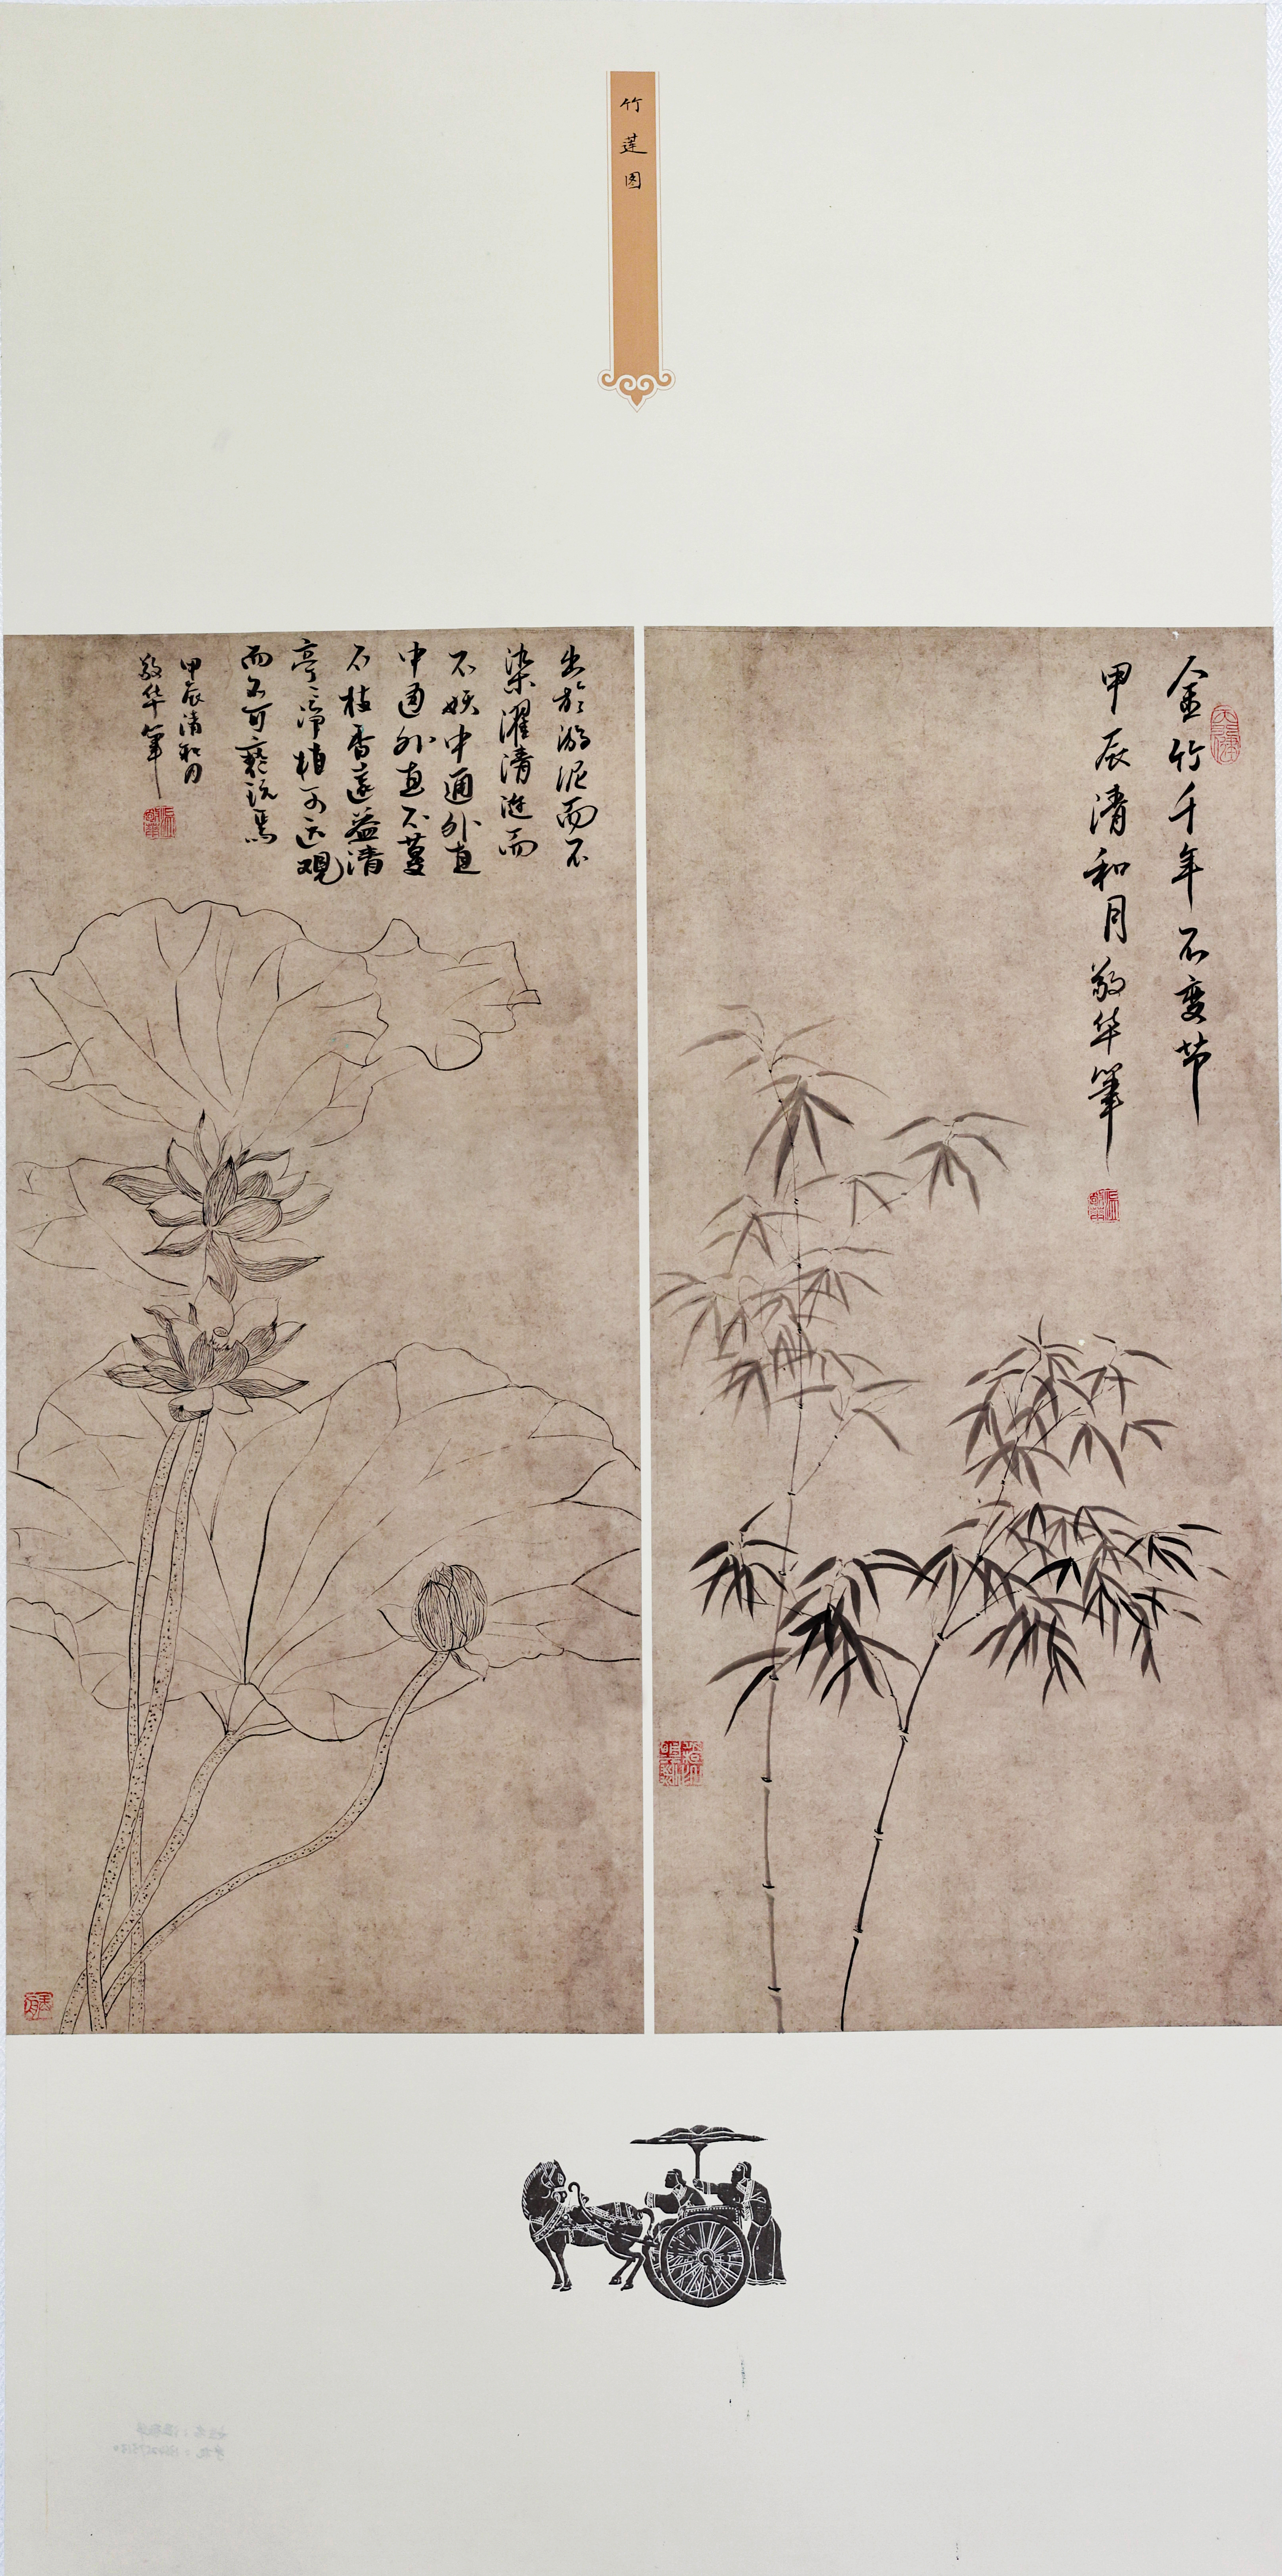 竹莲图
金竹千年不变节
甲辰清和月敬华笔
出於淤泥而不
染濯清涟而
不妖中通外直
中通外直不蔓
不枝香远益清
亭亭净植可远观
而不可亵玩焉
甲辰清和月
敬华笔